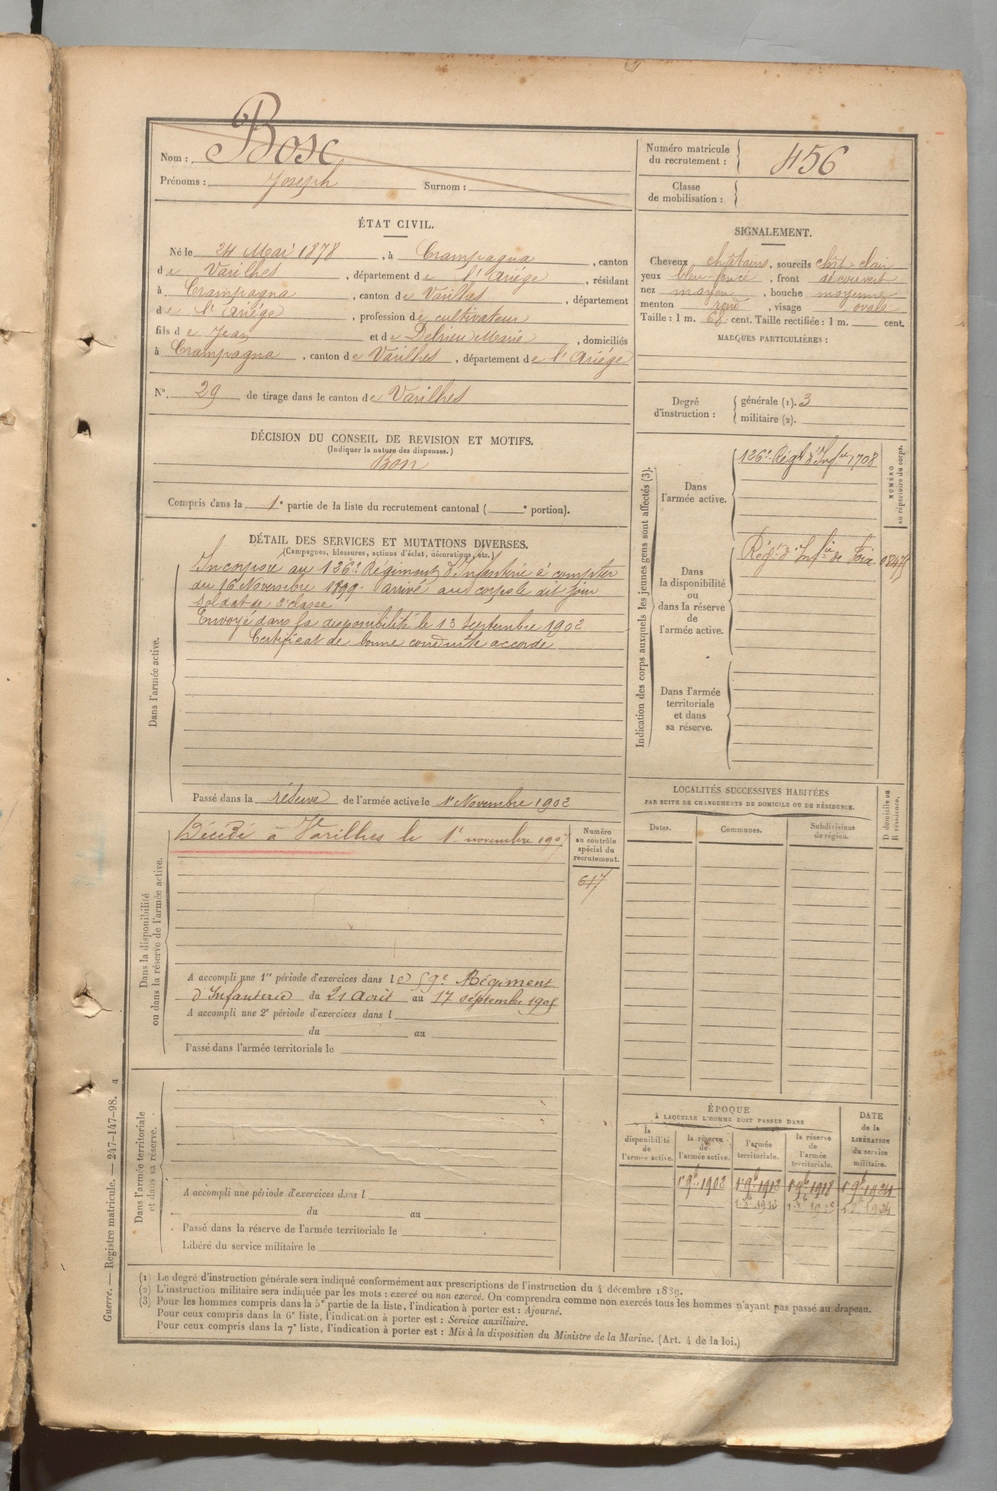 Nom : Bosc
Prénoms : Joseph Surnom :
Numéro matricule du recrutement : 456
Classe de mobilisation :
ÉTAT CIVIL.
Né le 24 Mai 1878, à Crampagna, canton
de Varilhes, département de l'Ariège, résidant
à Crampagna, canton de Varilhes, département
de l'Ariège, profession de cultivateur
fils de Jean et de Delrieu Marie, domiciliés
à Crampagna, canton de Varilhes, département de l'Ariège
N° 29 de tirage dans le canton de Varilhes
SIGNALEMENT.
Cheveux châtains, sourcils chât. clair
yeux bleu foncé, front découvert
nez moyen, bouche moyenne
menton rond, visage ovale
Taille : 1 m. 68 cent. Taille rectifiée : 1 m. cent.
MARQUES PARTICULIÈRES :
Degré d'instruction : générale (1). 3
militaire (2).
DÉCISION DU CONSEIL DE REVISION ET MOTIFS.
(Indiquer la nature des dispenses.)
Bon
Compris dans la 1e partie de la liste du recrutement cantonal ( e portion).
DÉTAIL DES SERVICES ET MUTATIONS DIVERSES.
(Campagnes, blessures, actions d'éclat, décorations, etc.)
Dans l'armée active.
Incorporé au 126e Régiment d'Infanterie à compter
du 16 Novembre 1899. arrivé au corps le dit jour
soldat de 2e classe
Envoyé dans la disponibilité le 13 Septembre 1902
Certificat de bonne conduite accordé
Passé dans la réserve de l'armée active le 1er Novembre 1902
Indication des corps auxquels les jeunes gens sont affectés (3).
NUMÉRO au répertoire du corps.
Dans l'armée active.
126e Régt d'Infie 1708
Dans la disponibilité ou dans la réserve de l'armée active.
Régt d'Infie de Foix
Dans l'armée territoriale et dans sa réserve.
Dans la disponibilité ou dans la réserve de l'armée active.
Décédé à Varilhes le 1er novembre 1907
Numéro au contrôle spécial du recrutement.
617
A accompli une 1re période d'exercices dans le 59e Régiment
d'Infanterie du 21 Août au 17 septembre 1905
A accompli une 2e période d'exercices dans l
du au
Passé dans l'armée territoriale le
LOCALITÉS SUCCESSIVES HABITÉES
PAR SUITE DE CHANGEMENTS DE DOMICILE OU DE RÉSIDENCE.
Dates. Communes. Subdivisions de région. D domicile ou R résidence.
Dans l'armée territoriale et dans sa réserve.
A accompli une période d'exercices dans l
du au
Passé dans la réserve de l'armée territoriale le
Libéré du service militaire le
ÉPOQUE
À LAQUELLE L'HOMME DOIT PASSER DANS
la disponibilité de l'armée active. la réserve de l'armée active. l'armée territoriale. la réserve de l'armée territoriale.
DATE de la LIBÉRATION du service militaire.
1er 9bre 1902 1er 9bre 1912 1er 9bre 1918 1er 9bre 1924
(1) Le degré d'instruction générale sera indiqué conformément aux prescriptions de l'instruction du 4 décembre 1889.
(2) L'instruction militaire sera indiquée par les mots : exercé ou non exercé. On comprendra comme non exercés tous les hommes n'ayant pas passé au drapeau.
(3) Pour les hommes compris dans la 5e partie de la liste, l'indication à porter est : Ajourné.
Pour ceux compris dans la 6e liste, l'indication à porter est : Service auxiliaire.
Pour ceux compris dans la 7e liste, l'indication à porter est : Mis à la disposition du Ministre de la Marine. (Art. 4 de la loi.)
Guerre. — Registre matricule. — 247-147-98. 4